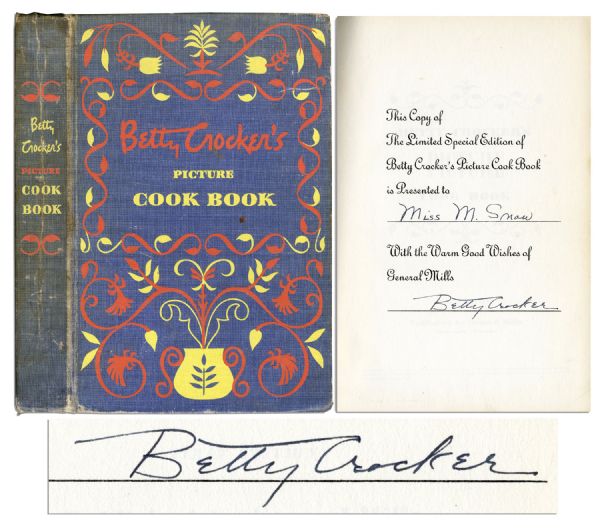 Betty
Crocker's
PICTURE
COOK
BOOK
Betty Crocker's
PICTURE
COOK BOOK
This Copy of
The Limited Special Edition of
Betty Crocker's Picture Cook Book
is Presented to
Miss M. Snow
With the Warm Good Wishes of
General Mills
Betty Crocker
Betty Crocker